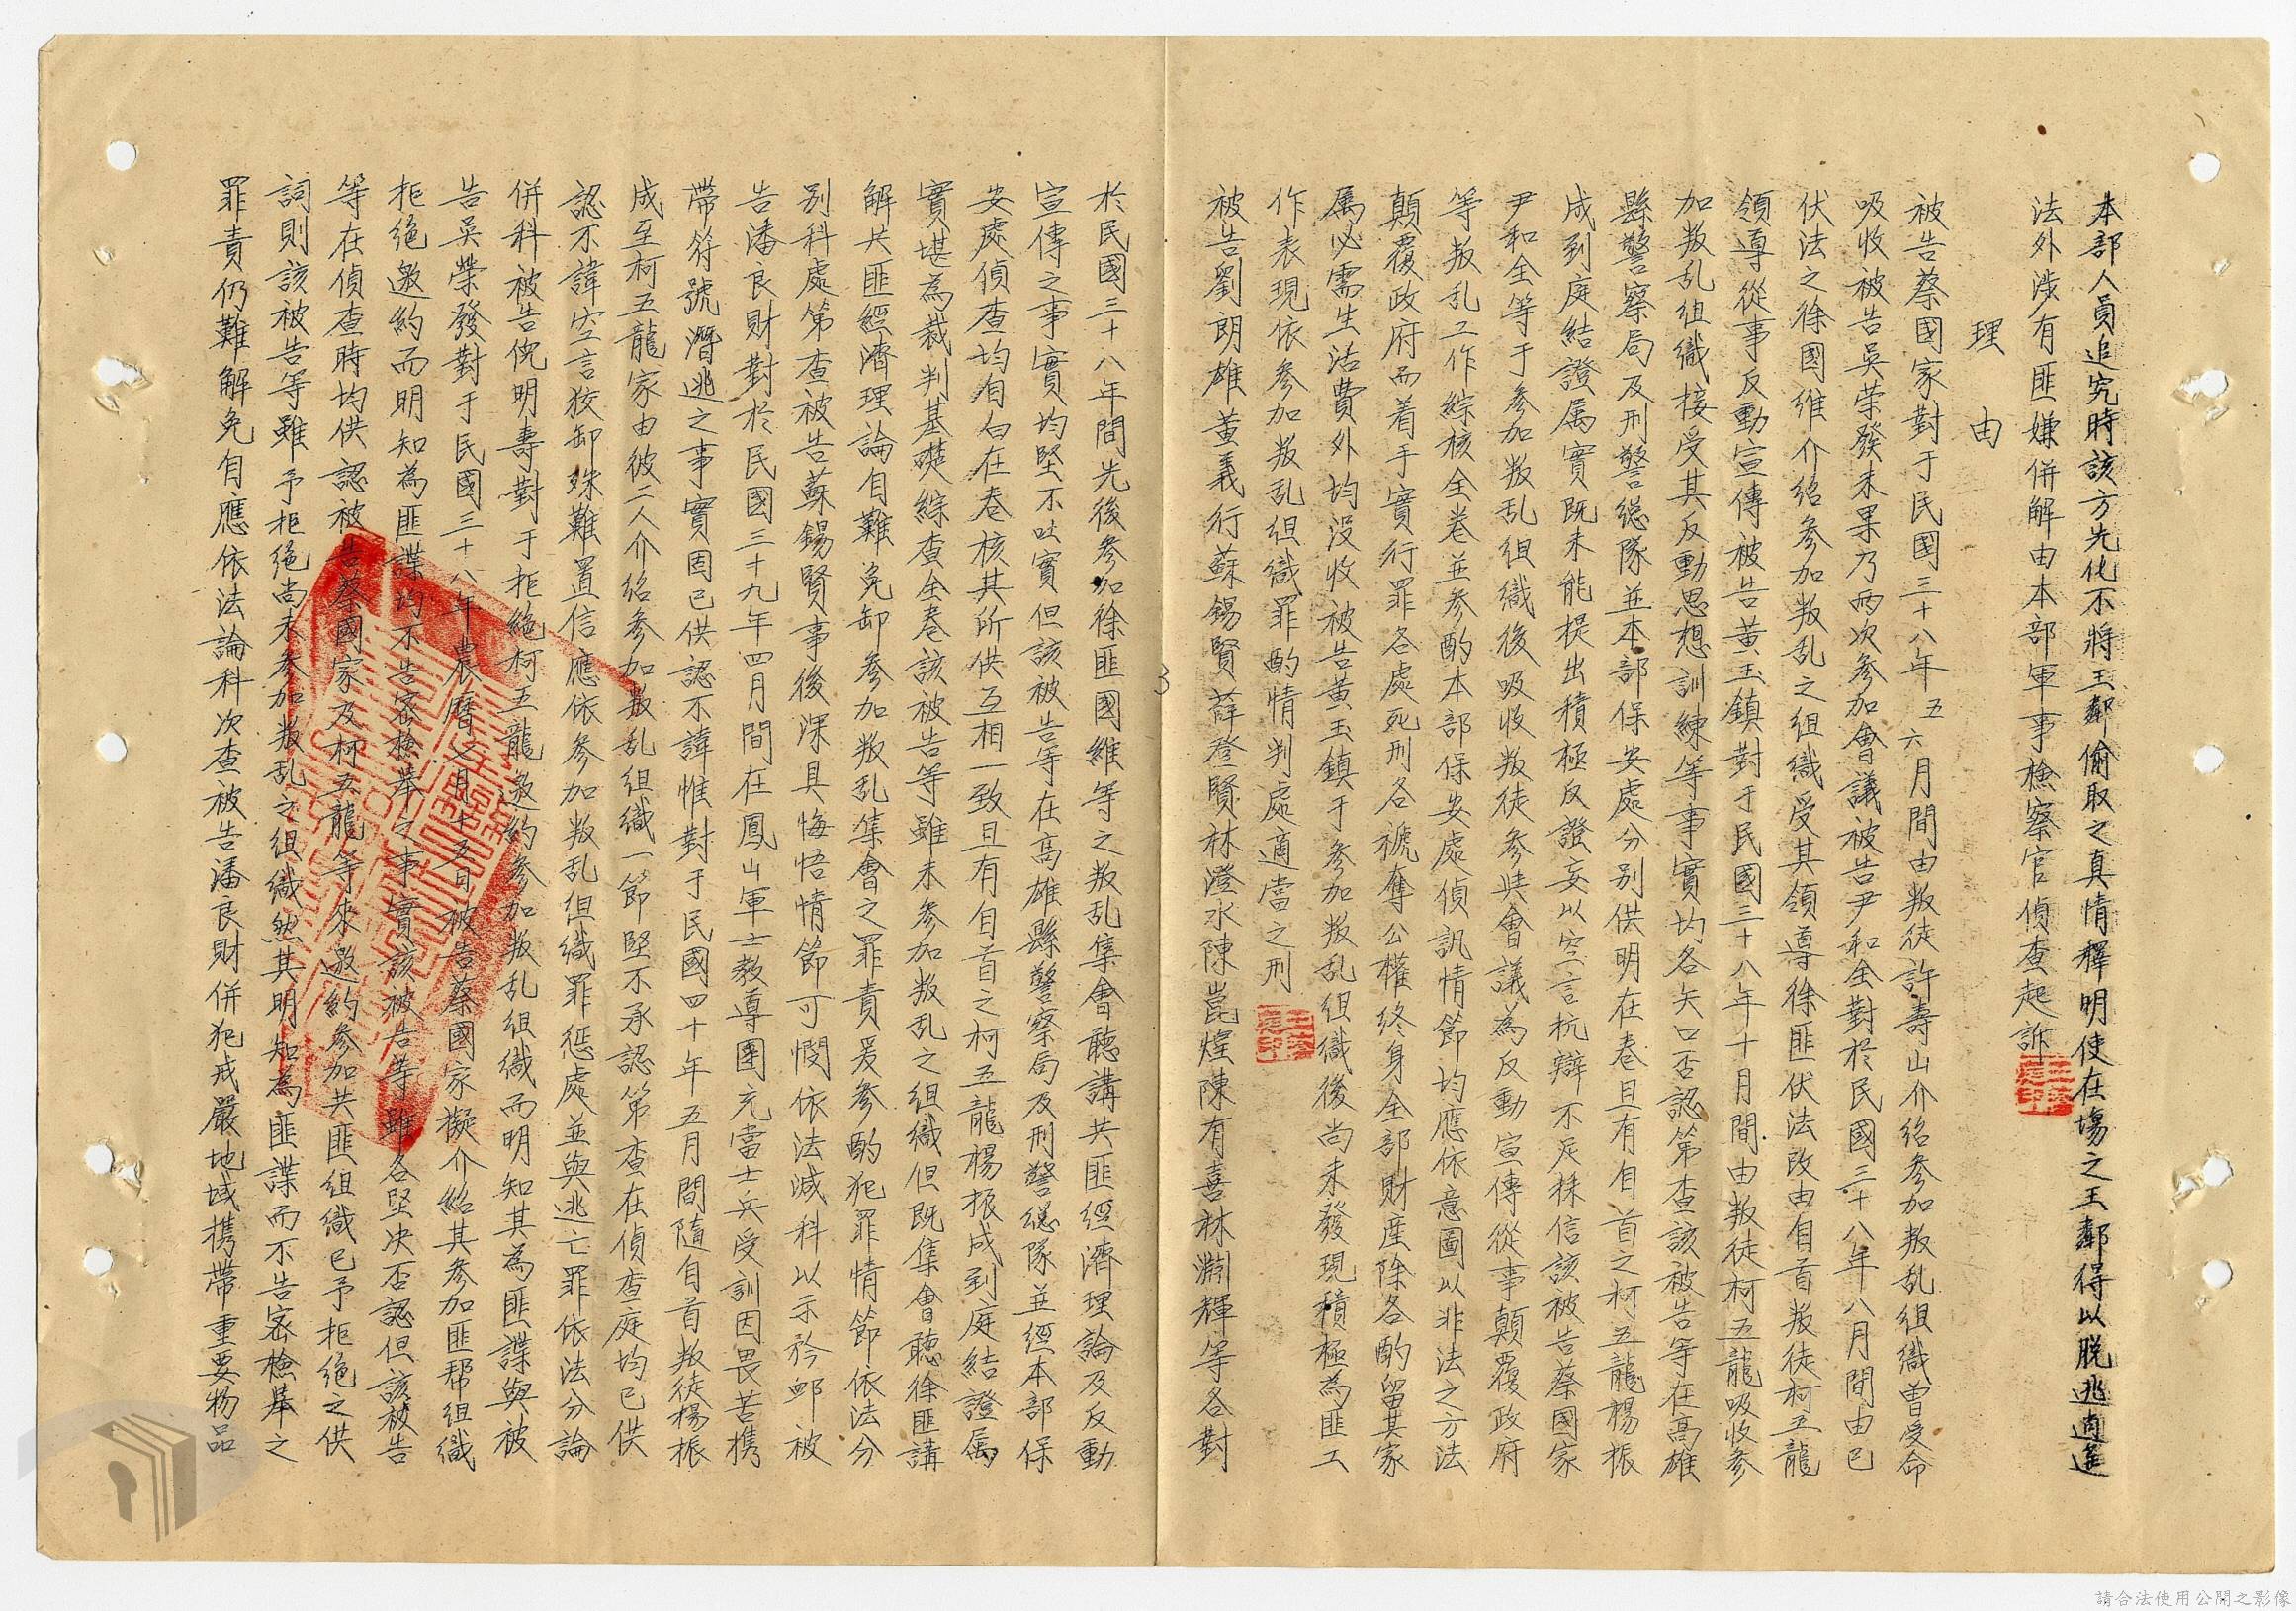 本部人員追究時該方先化不將王鄰偷取之真情釋明使在場之王鄰得以脫逃逍遙
法外涉有匪嫌併解由本部軍事檢察官偵查起訴
理由
被告蔡國家對于民國三十八年五六月間由叛徒許壽山介紹參加叛乱組織曾受命
吸收被告吳荣發未果乃兩次參加會議被告尹和全對於民國三十八年八月間由已
伏法之徐國维介紹參加叛乱之組織受其領導徐匪伏法改由自首叛徒柯五龍
領導從事反動宣傳被告黃玉鎮對于民國三十八年十月間由叛徒柯五龍吸收參
加叛乱組織接受其反動思想訓練等事實均各矢口否認第查該被告等在高雄
縣警察局及刑警總隊並本部保安處分別供明在卷且有自首之柯五龍楊振
成到庭結證属實既未能提出積極反證妄以空言抗辯不足採信該被告蔡國家
尹和全等于參加叛乱組織後吸收叛徒參與會議為反動宣傳從事顛覆政府
等叛乱工作綜核全卷並參酌本部保安處偵訊情節均應依意圖以非法之方法
顛覆政府而着手實行罪各處死刑各褫奪公權終身全部財產除各酌留其家
属必需生活費外均沒收被告黃玉鎮于參加叛乱組織後尚未發現積極為匪工
作表現依參加叛乱组織罪酌情判處適當之刑
被告劉朗雄董義行蘇錫賢薛登賢林澄水陳崑煌陳有喜林淵輝等各對
於民國三十八年間先後參加徐匪國維等之叛乱集會聽講共匪經濟理論及反動
宣傳之事實均堅不吐實但該被告等在高雄縣警察局及刑警總隊並經本部保
安處偵查均自白在卷核其所供互相一致且有自首之柯五龍楊振成到庭結證属
實堪為裁判基礎綜查全卷該被告等雖未參加叛乱之組織但既集會聽徐匪講
解共匪經濟理論自難免卸參加叛乱集會之罪責爰參酌犯罪情節依法分
別科處第查被告蘇錫賢事後深具悔悟情節可憫依法減科以示矜卹被
告潘良財對於民國三十九年四月間在鳳山軍士教導團充當士兵受訓因畏苦携
帶符號潛逃之事實固已供認不諱惟對于民國四十年五月間隨自首叛徒楊振
成至柯五龍家由彼二人介紹參加叛乱組織一節堅不承認第查在偵查庭均已供
認不諱空言狡卸殊難置信應依參加叛乱組織罪惩處並與逃亡罪依法分論
併科被告倪明壽對于拒絕柯五龍邀約參加叛乱組織而明知其為匪諜與被
告吳荣發對于民國三十八年農曆七月十五日被告蔡國家擬介紹其參加匪帮組織
拒絕邀約而明知為匪諜均不告密檢舉之事實該被告等雖各堅决否認但該被告
等在偵查時均供認被告蔡國家及柯五龍等來邀約參加共匪組織已予拒絕之供
詞則該被告等雖予拒絕尚未參加叛乱之組織然其明知為匪諜而不告密檢舉之
罪責仍難解免自應依法論科次查被告潘良財併犯戒嚴地域携帶重要物品
3
請合法使用公開之影像